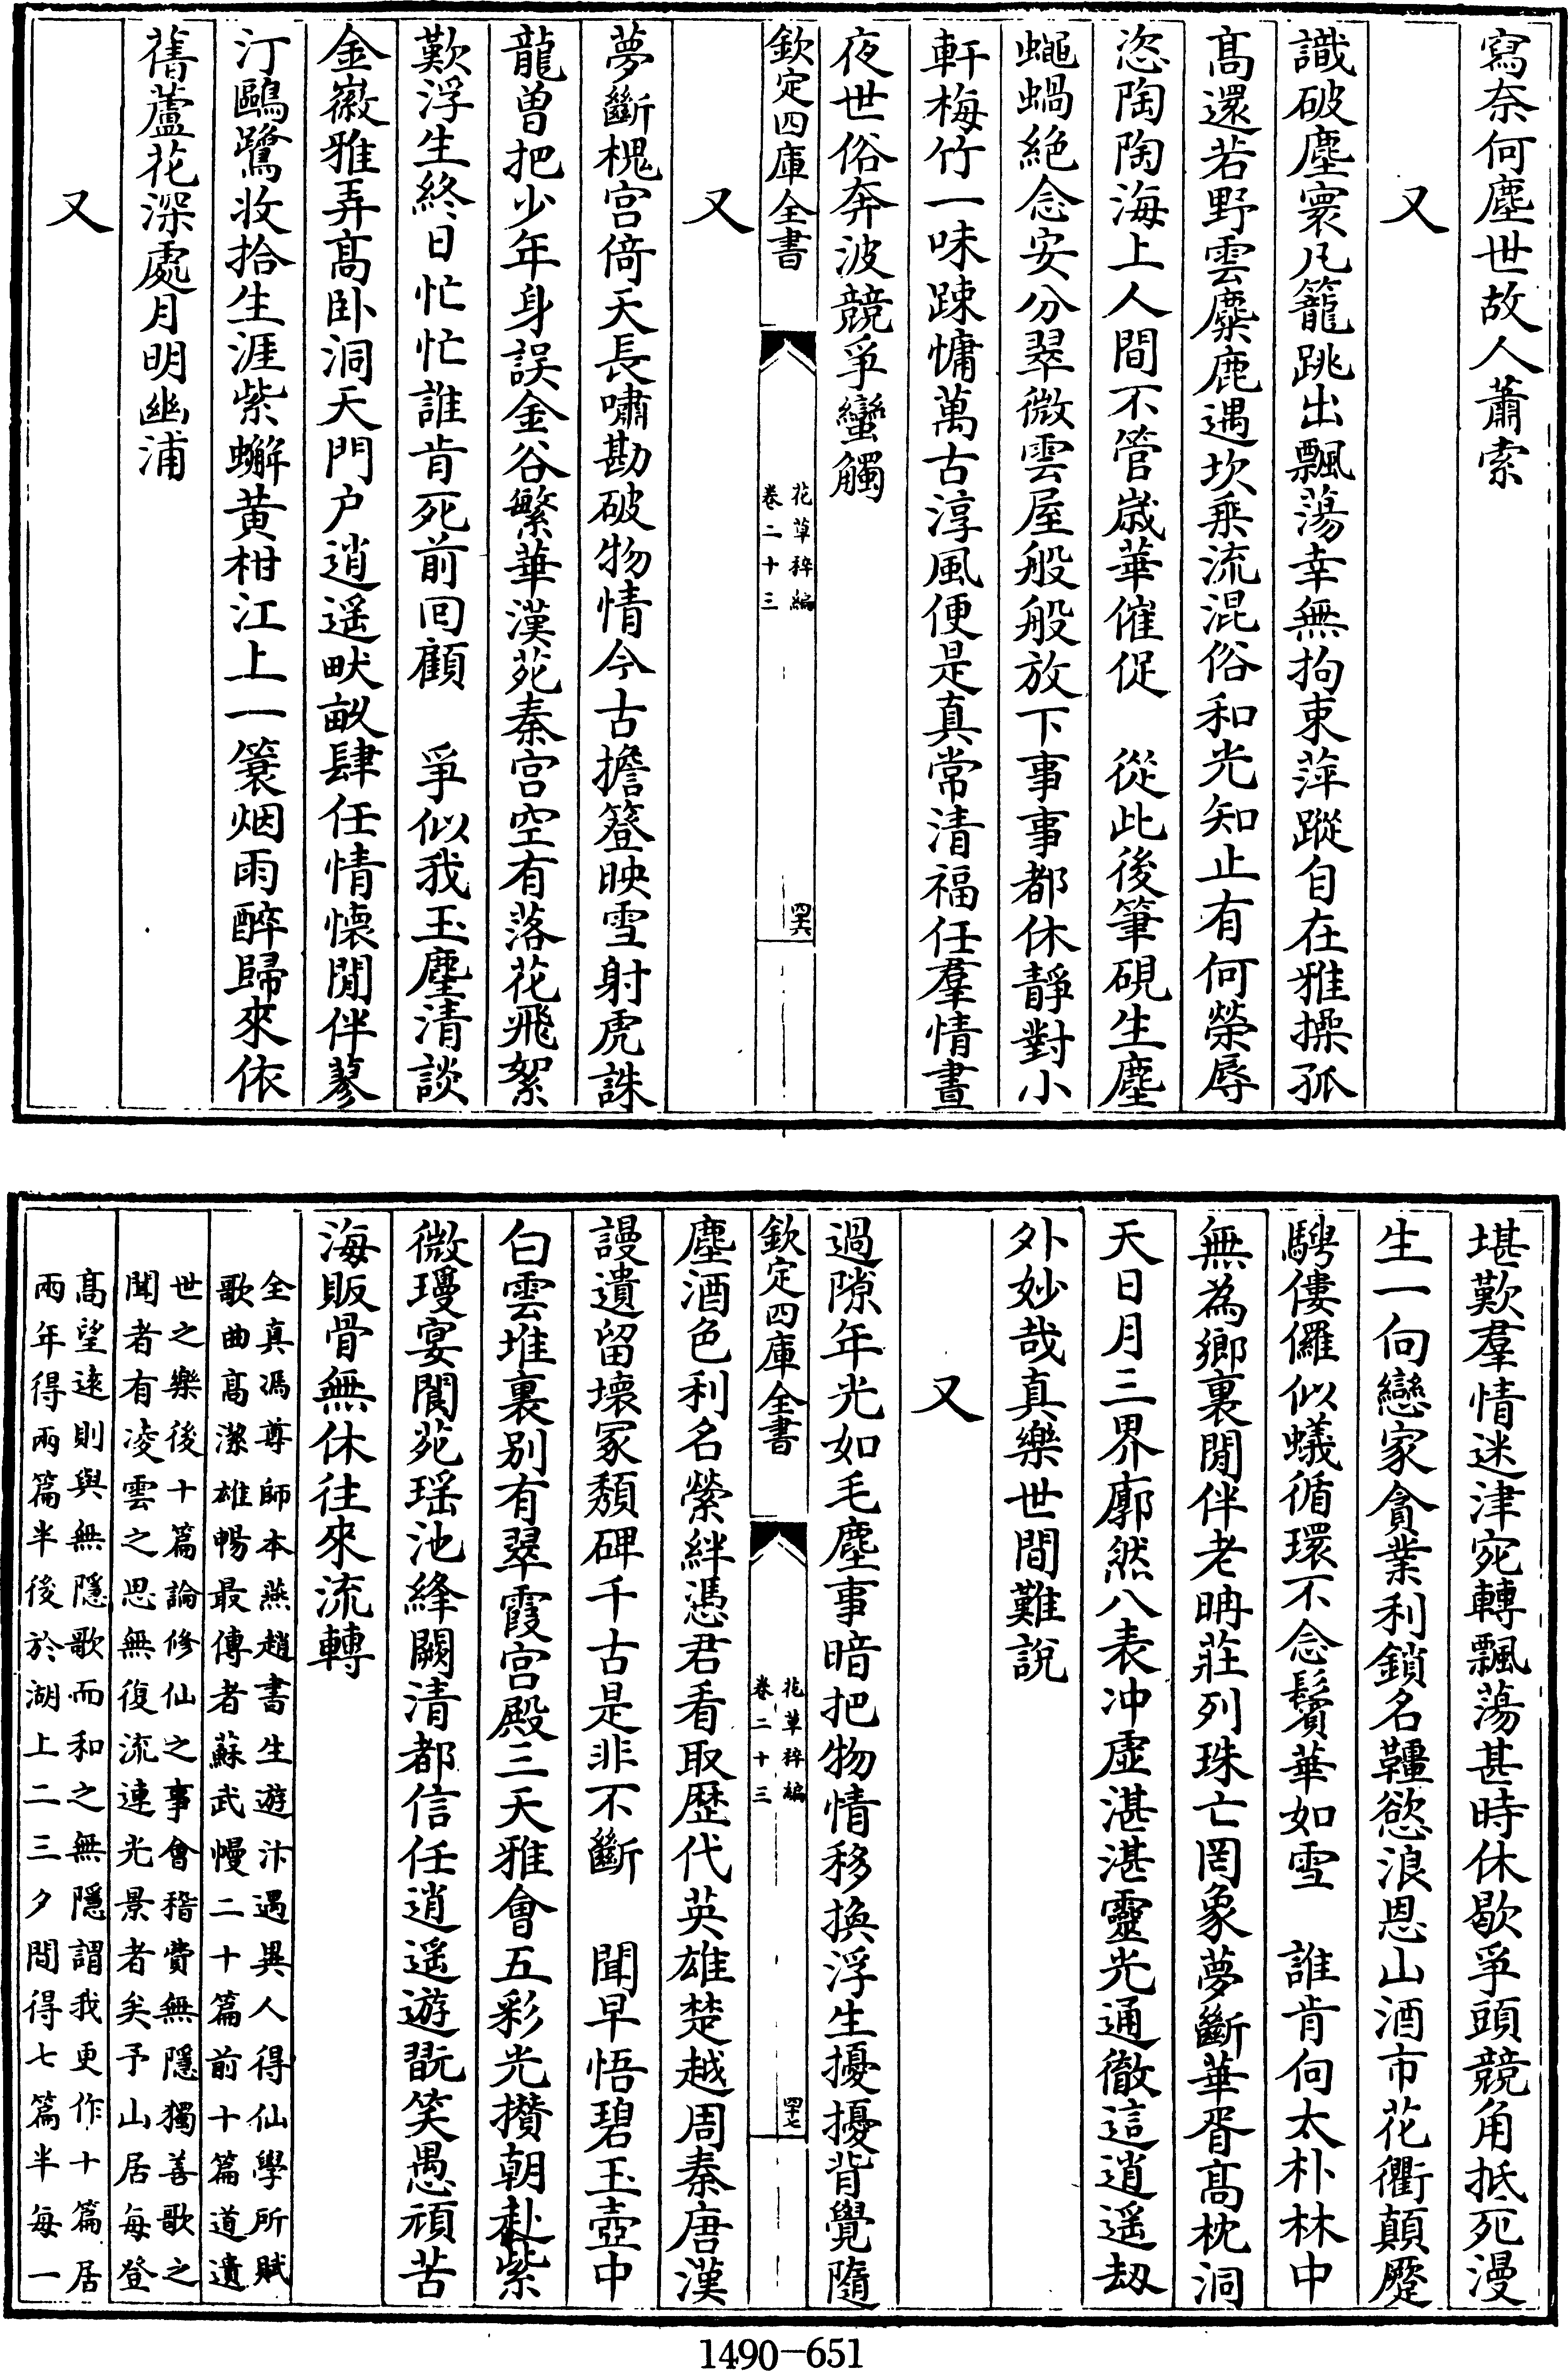 寫奈何塵世故人蕭索
又
識破塵寰凡籠跳出飄蕩幸無拘束萍蹤自在雅操孤
髙還若野雲麋鹿遇坎乗流混俗和光知止有何榮辱
恣陶陶海上人間不管歳華催促　從此後筆硯生塵
蠅蝸絶念安分翠微雲屋般般放下事事都休靜對小
軒梅竹一味踈慵萬古淳風便是真常清福任羣情晝
夜世俗奔波競爭蠻觸
欽定四庫全書
花草稡編
卷二十三
四六
又
夢斷槐宫倚天長嘯勘破物情今古擔簦映雪射虎誅
龍曽把少年身誤金谷繁華漢苑秦宫空有落花飛絮
歎浮生終日忙忙誰肯死前回顧　爭似我玉塵清談
金徽雅弄髙卧洞天門户逍遥畎畝肆任情懐閒伴蓼
汀鷗鷺收拾生涯紫蠏黄柑江上一簑烟雨醉歸來依
舊蘆花深處月明幽浦
又
堪歎羣情迷津宛轉飄蕩甚時休歇爭頭競角抵死漫
生一向戀家貪業利鎖名韁慾浪恩山酒市花衢顛蹷
騁僂儸似蟻循環不念鬢華如雪　誰肯向太朴林中
無為鄉裏閒伴老冉莊列珠亡罔象夢斷華胥髙枕洞
天日月三界廓然八表冲虚湛湛靈光通徹這逍遥刼
外妙哉真樂世間難說
又
過隙年光如毛塵事暗把物情移換浮生擾擾背覺隨
欽定四庫全書
花草稡編
卷二十三
四七
塵酒色利名縈絆憑君看取歴代英雄楚越周秦唐漢
謾遺留壞冢頽碑千古是非不斷　聞早悟碧玉壺中
白雲堆裏别有翠霞宫殿三天雅會五彩光攅朝赴紫
微瓊宴閬苑瑶池絳闕清都信任逍遥遊翫笑愚頑苦
海販骨無休往來流轉
全真馮尊師本燕趙書生遊汴遇異人得仙學所賦
歌曲髙潔雄暢最傳者蘇武慢二十篇前十篇道遺
世之樂後十篇論修仙之事會稽費無隱獨善歌之
聞者有凌雲之思無復流連光景者矣予山居每登
髙望逺則與無隱歌而和之無隱謂我更作十篇居
兩年得兩篇半後於湖上二三夕間得七篇半每一
1490-651